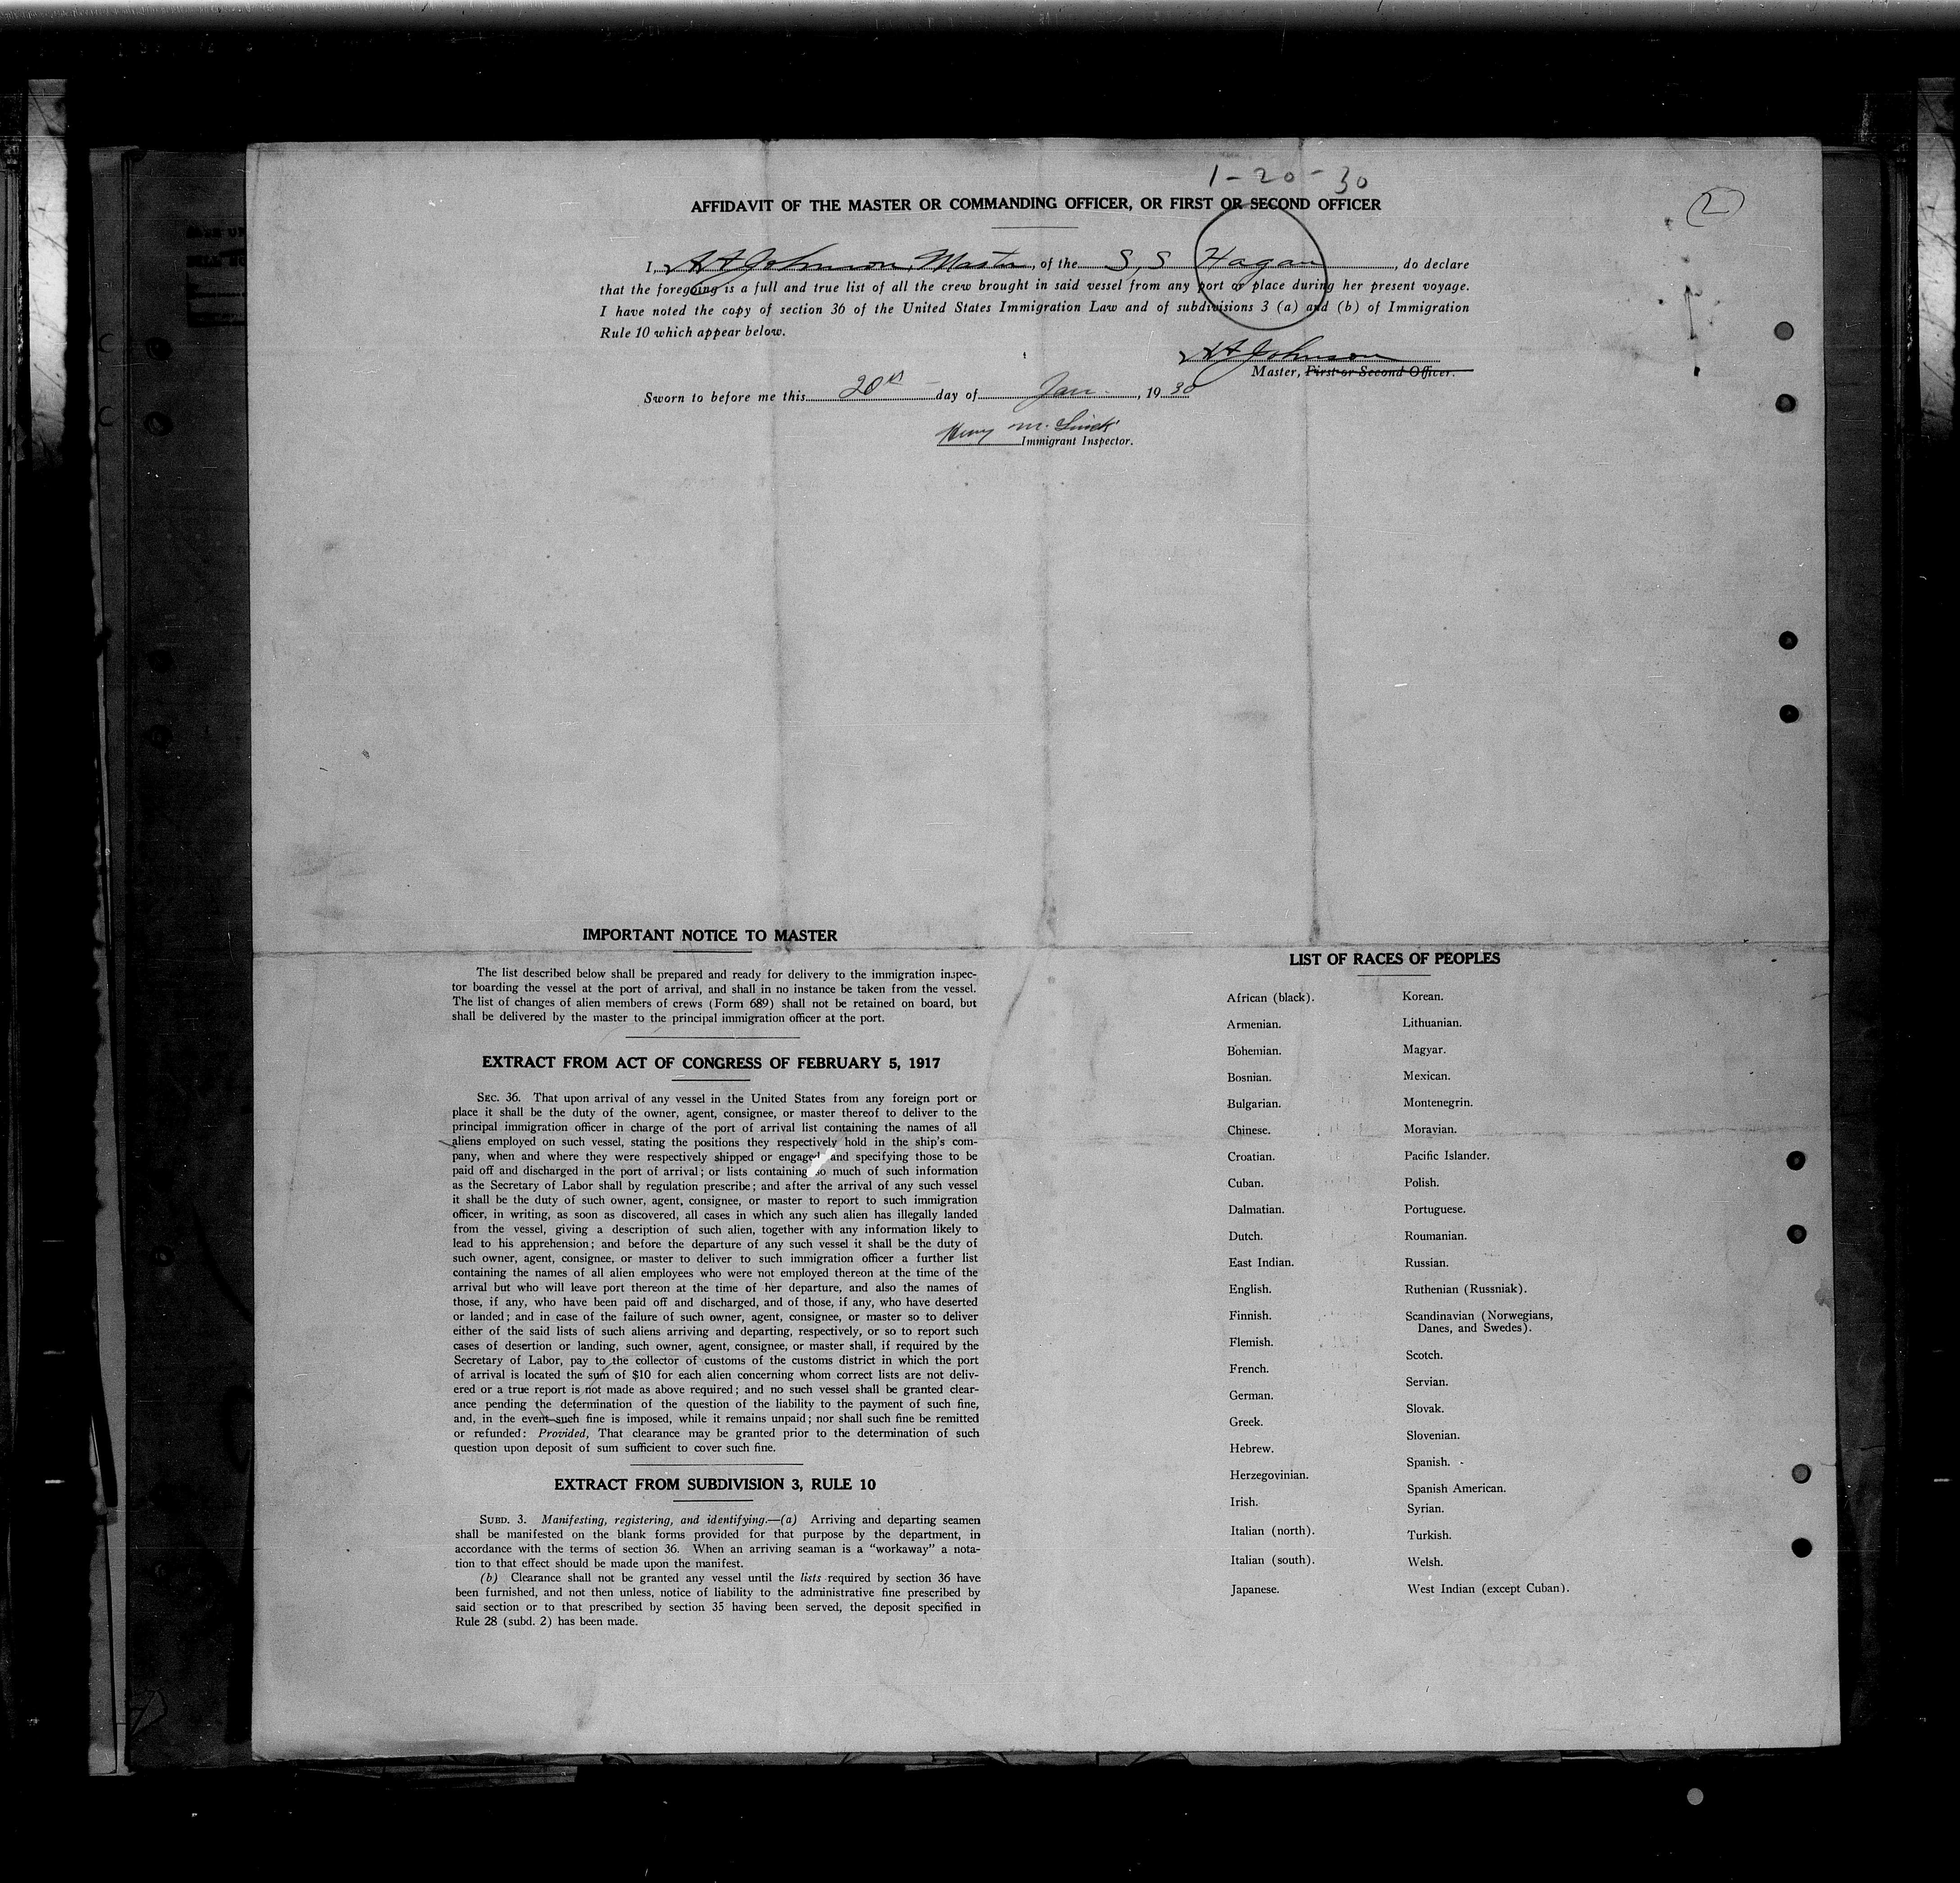 1-20-30
2
AFFIDAVIT OF THE MASTER OR COMMANDING OFFICER, OR FIRST OR SECOND OFFICER
I, Johnson, Master, of the S, S Hagan, do declare
that the foregoing is a full and true list of all the crew brought in said vessel from any port or place during her present voyage.
I have noted the copy of section 36 of the United States Immigration Law and of subdivisions 3 (a) and (b) of Immigration
Rule 10 which appear below.
Johnson
Master, First or Second Officer.
Sworn to before me this 20th day of Jan., 1930
Henry M.
Immigrant Inspector.
IMPORTANT NOTICE TO MASTER
The list described below shall be prepared and ready for delivery to the immigration inspec-
tor boarding the vessel at the port of arrival, and shall in no instance be taken from the vessel.
The list of changes of alien members of crews (Form 689) shall not be retained on board, but
shall be delivered by the master to the principal immigration officer at the port.
EXTRACT FROM ACT OF CONGRESS OF FEBRUARY 5, 1917
SEC. 36. That upon arrival of any vessel in the United States from any foreign port or
place it shall be the duty of the owner, agent, consignee, or master thereof to deliver to the
principal immigration officer in charge of the port of arrival list containing the names of all
aliens employed on such vessel, stating the positions they respectively hold in the ship's com-
pany, when and where they were respectively shipped or engaged, and specifying those to be
paid off and discharged in the port of arrival; or lists containing so much of such information
as the Secretary of Labor shall by regulation prescribe; and after the arrival of any such vessel
it shall be the duty of such owner, agent, consignee, or master to report to such immigration
officer, in writing, as soon as discovered, all cases in which any such alien has illegally landed
from the vessel, giving a description of such alien, together with any information likely to
lead to his apprehension; and before the departure of any such vessel it shall be the duty of
such owner, agent, consignee, or master to deliver to such immigration officer a further list
containing the names of all alien employees who were not employed thereon at the time of the
arrival but who will leave port thereon at the time of her departure, and also the names of
those, if any, who have been paid off and discharged, and of those, if any, who have deserted
or landed; and in case of the failure of such owner, agent, consignee, or master so to deliver
either of the said lists of such aliens arriving and departing, respectively, or so to report such
cases of desertion or landing, such owner, agent, consignee, or master shall, if required by the
Secretary of Labor, pay to the collector of customs of the customs district in which the port
of arrival is located the sum of $10 for each alien concerning whom correct lists are not deliv-
ered or a true report is not made as above required; and no such vessel shall be granted clear-
ance pending the determination of the question of the liability to the payment of such fine,
and, in the event such fine is imposed, while it remains unpaid; nor shall such fine be remitted
or refunded: Provided, That clearance may be granted prior to the determination of such
question upon deposit of sum sufficient to cover such fine.
EXTRACT FROM SUBDIVISION 3, RULE 10
SUBD. 3. Manifesting, registering, and identifying.—(a) Arriving and departing seamen
shall be manifested on the blank forms provided for that purpose by the department, in
accordance with the terms of section 36. When an arriving seaman is a "workaway" a nota-
tion to that effect should be made upon the manifest.
(b) Clearance shall not be granted any vessel until the lists required by section 36 have
been furnished, and not then unless, notice of liability to the administrative fine prescribed by
said section or to that prescribed by section 35 having been served, the deposit specified in
Rule 28 (subd. 2) has been made.
LIST OF RACES OF PEOPLES
African (black).
Armenian.
Bohemian.
Bosnian.
Bulgarian.
Chinese.
Croatian.
Cuban.
Dalmatian.
Dutch.
East Indian.
English.
Finnish.
Flemish.
French.
German.
Greek.
Hebrew.
Herzegovinian.
Irish.
Italian (north).
Italian (south).
Japanese.
Korean.
Lithuanian.
Magyar.
Mexican.
Montenegrin.
Moravian.
Pacific Islander.
Polish.
Portuguese.
Roumanian.
Russian.
Ruthenian (Russniak).
Scandinavian (Norwegians,
Danes, and Swedes).
Scotch.
Servian.
Slovak.
Slovenian.
Spanish.
Spanish American.
Syrian.
Turkish.
Welsh.
West Indian (except Cuban).